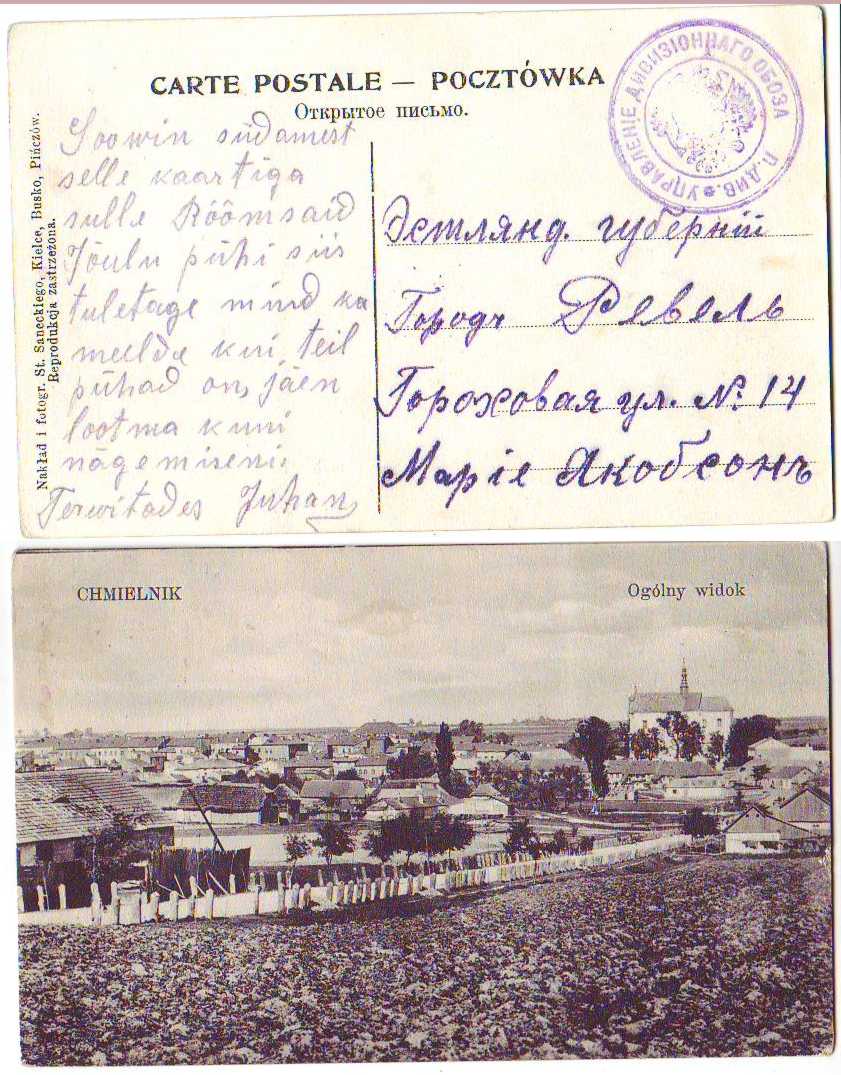 CARTE POSTALE — POCZTÓWKA
Открытое письмо.
УПРАВЛЕНІЕ ДИВИЗІОННАГО ОБОЗА
П. ДИВ.
Nakład i fotogr. St. Saneckiego, Kielce, Busko, Pińczów.
Reprodukcja zastrzeżona.
Soowin südamest
selle kaartiga
sulle Rõõmsaid
Jõulu pühi siis
tuletage mind ka
meelde kui teil
pühad on, jäen
lootma kuni
nägemiseni.
Terwitades Juhan
Эстлянд. губерніи
Городъ Ревель
Гороховая ул. №. 14
Маріе Якобсонъ
CHMIELNIK
Ogólny widok